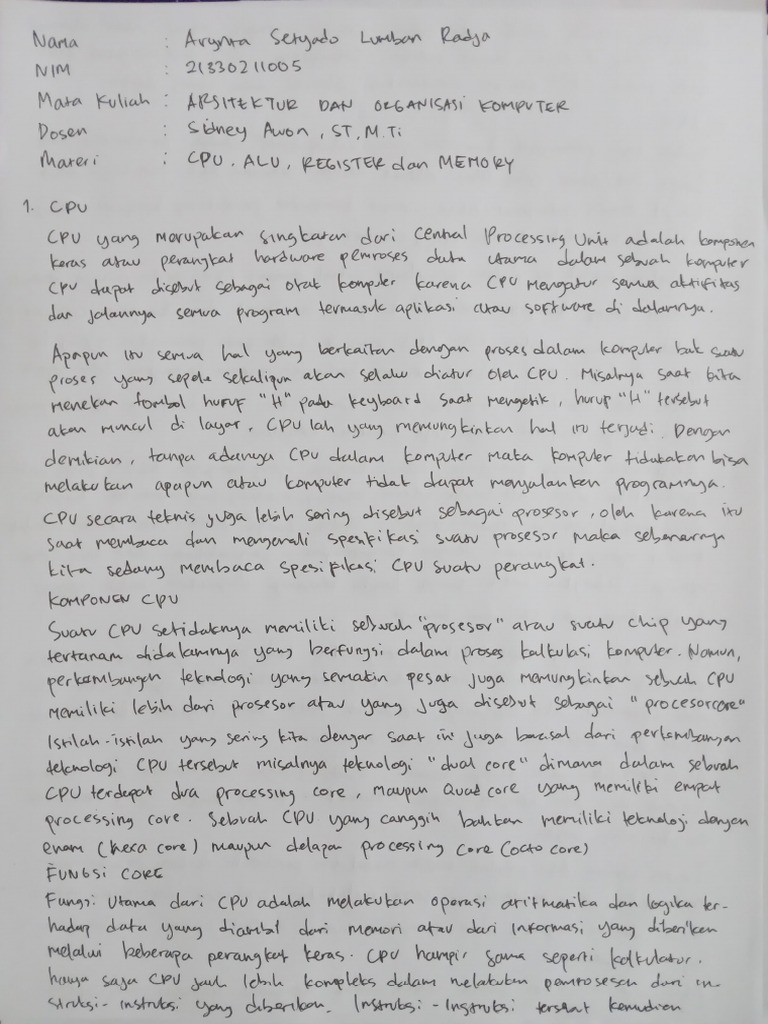 Nama : Arynra Setyado Lumban Radja
NIM : 21330211005
Mata Kuliah : ARSITEKTUR DAN ORGANISASI KOMPUTER
Dosen : Sidney Awon, ST, M.Ti
Materi : CPU, ALU, REGISTER dan MEMORY
1. CPU
CPU yang merupakan singkatan dari Central Processing Unit adalah komponen
keras atau perangkat hardware pemroses data utama dalam sebuah komputer
CPU dapat disebut sebagai otak komputer karena CPU mengatur semua aktifitas
dan jalannya semua program termasuk aplikasi atau software di dalamnya.
Apapun itu semua hal yang berkaitan dengan proses dalam komputer baik suatu
proses yang sepele sekalipun akan selalu diatur oleh CPU. Misalnya saat kita
menekan tombol huruf "H" pada keyboard saat mengetik, hurup "H" tersebut
akan muncul di layar, CPU lah yang memungkinkan hal itu terjadi. Dengan
demikian, tanpa adanya CPU dalam komputer maka komputer tidakakan bisa
melakukan apapun atau komputer tidak dapat menjalankan programnya.
CPU secara teknis juga lebih sering disebut sebagai prosesor, oleh karena itu
saat membaca dan mengenali spesifikasi suatu prosesor maka sebenarnya
kita sedang membaca spesifikasi CPU suatu perangkat.
KOMPONEN CPU
Suatu CPU setidaknya memiliki sebuah "prosesor" atau suatu chip yang
tertanam didalamnya yang berfungsi dalam proses kalkulasi komputer. Namun,
perkembangan teknologi yang semakin pesat juga memungkinkan sebuah CPU
memiliki lebih dari prosesor atau yang juga disebut sebagai "procesorcore"
Istilah-istilah yang sering kita dengar saat ini juga berasal dari perkembangan
teknologi CPU tersebut misalnya teknologi "dual core" dimana dalam sebuah
CPU terdapat dua processing core, maupun Quad core yang memiliki empat
processing core. Sebuah CPU yang canggih bahkan memiliki teknologi dengan
enam (hexa core) maupun delapan processing core (octo core)
FUNGSI CORE
Fungsi utama dari CPU adalah melakukan operasi aritmatika dan logika ter-
hadap data yang diambil dari memori atau dari informasi yang diberikan
melalui beberapa perangkat keras. CPU hampir sama seperti kalkulator.
hanya saja CPU jauh lebih kompleks dalam melakukan pemrosesan dari in-
struksi-instruksi yang diberikan. Instruksi-Instruksi tersebut kemudian